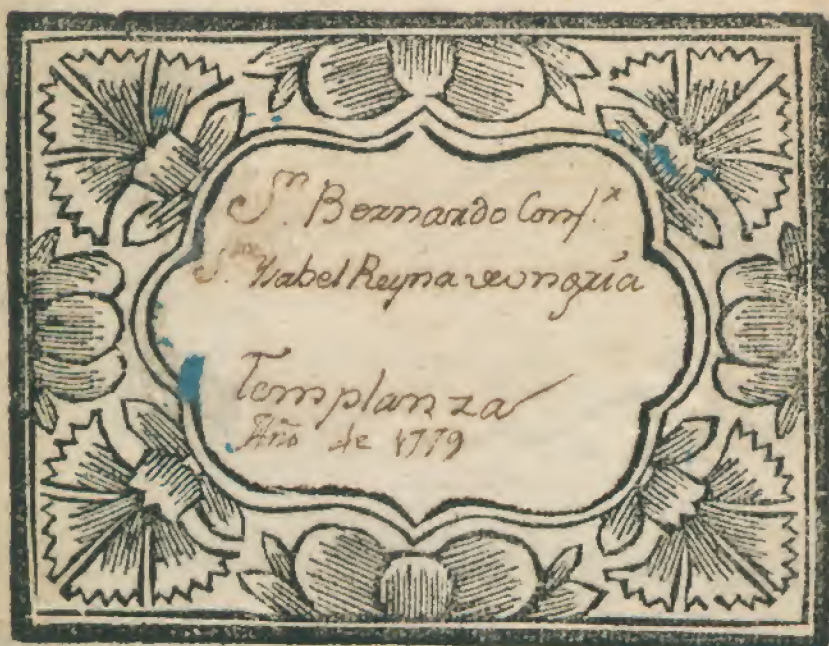 Sn. Bernardo Conf.r
Sta. Ysabel Reyna de ongria
Templanza
Año de 1779